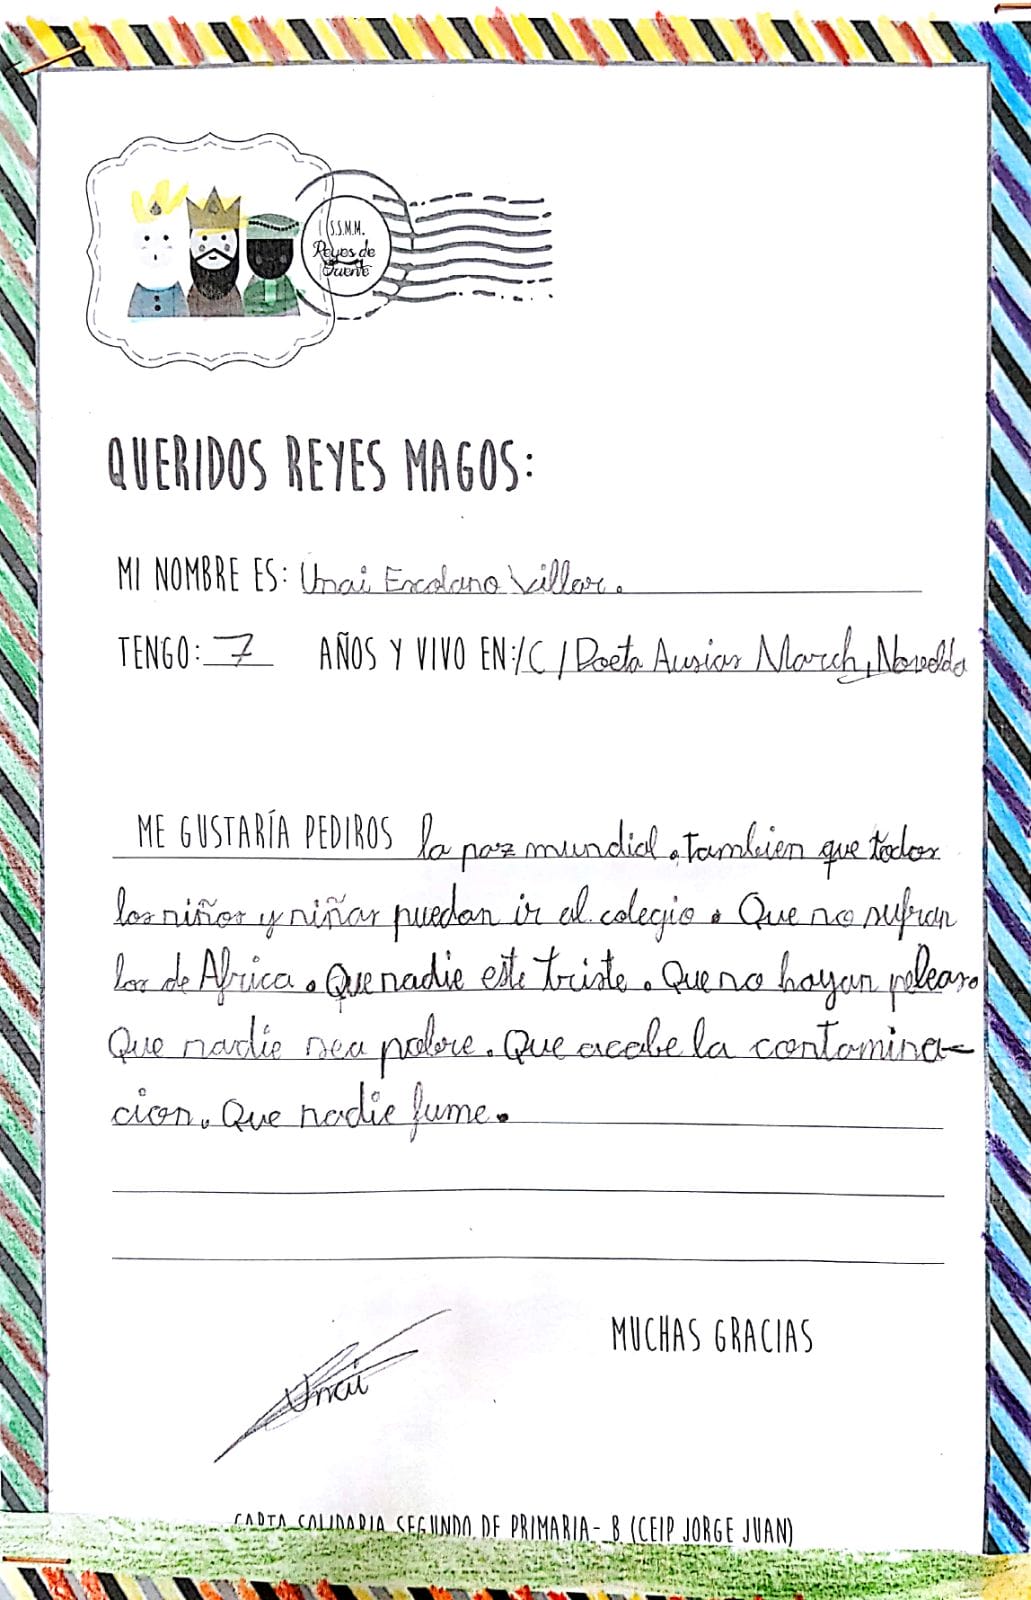 S.S.M.M.
Reyes de
Oriente
QUERIDOS REYES MAGOS:
MI NOMBRE ES: Unai Escolano Villar.
TENGO: 7 AÑOS Y VIVO EN:/C/Poeta Ausias March, Novelda
ME GUSTARÍA PEDIROS la paz mundial. tambien que todos
los niños y niñas puedan ir al colegio. Que no sufran
los de Africa. Que nadie esté triste. Que no hayan peleas.
Que nadie sea pobre. Que acabe la contamina-
cion. Que nadie fume.
MUCHAS GRACIAS
Unai
CARTA SOLIDARIA SEGUNDO DE PRIMARIA- B (CEIP JORGE JUAN)